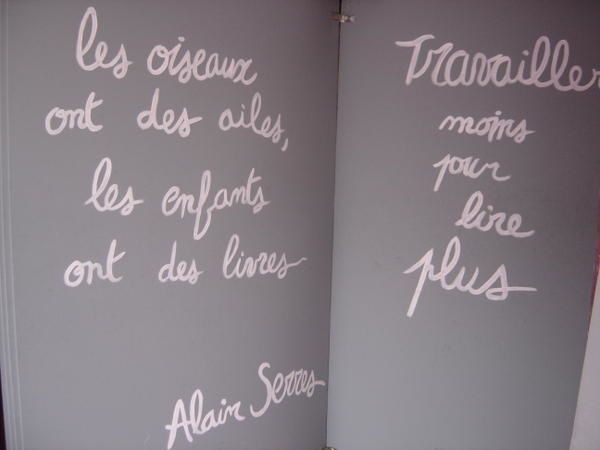 les oiseaux
ont des ailes,
les enfants
ont des livres
Alain Serres
Travailler
moins
pour
lire
plus